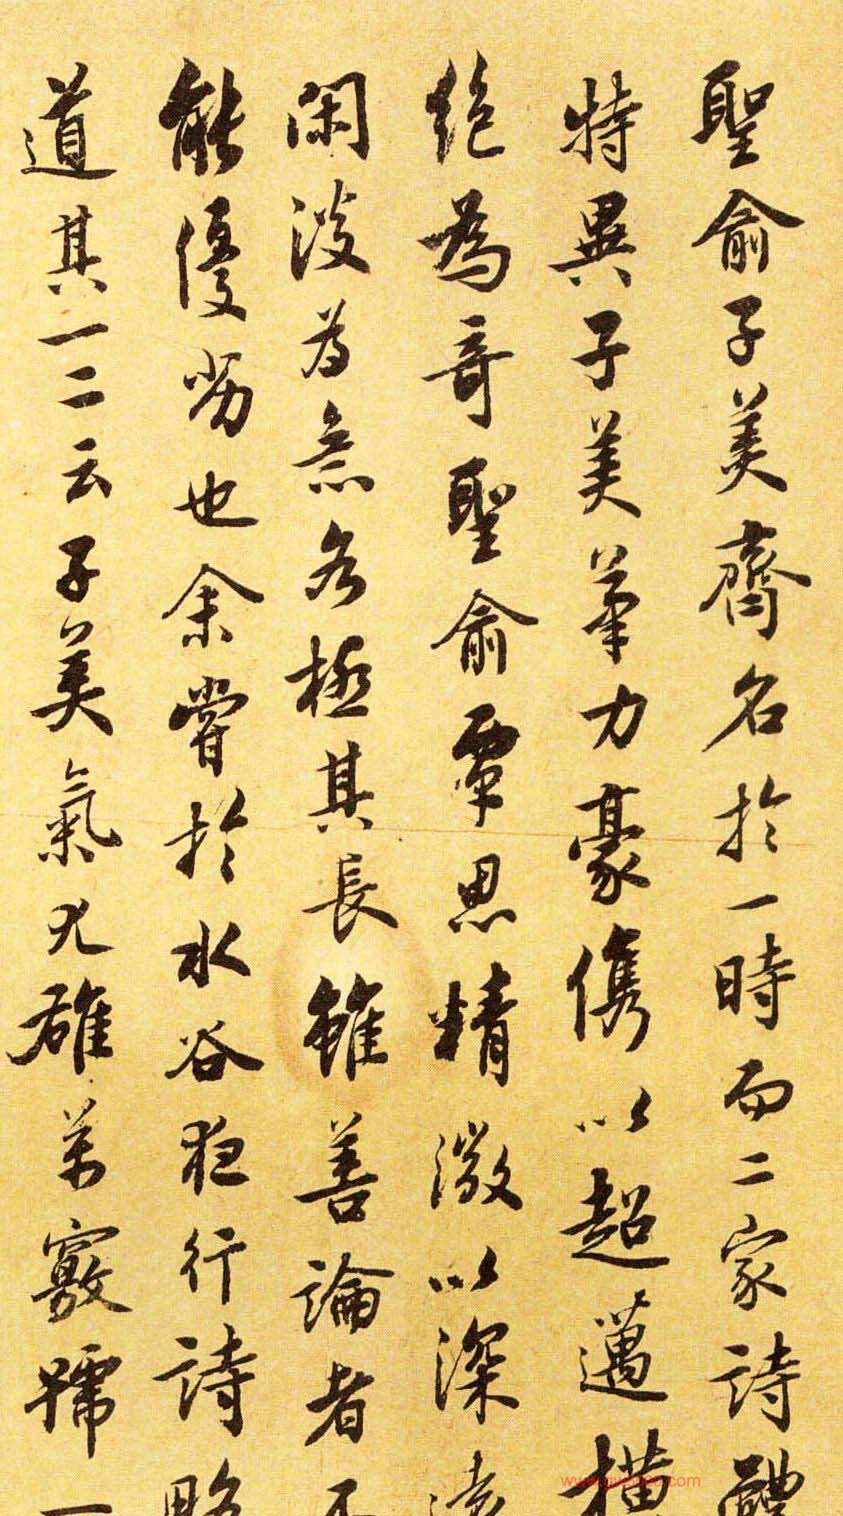 聖俞子美齊名於一時而二家詩體
特異子美筆力豪儁以超邁橫
絶為奇聖俞覃思精微以深遠
閑淡為意各極其長雖善論者不
能優劣也余嘗於水谷夜行詩略
道其一二云子美氣尤雄萬竅號一